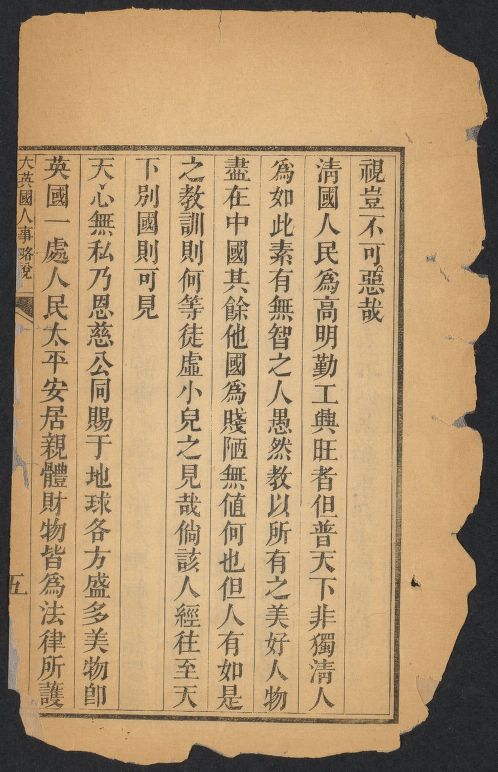 視豈不可惡哉
清國人民為高明勤工興旺者但普天下非獨清人
為如此素有無智之人愚然教以所有之美好人物
盡在中國其餘他國為賤陋無值何也但人有如是
之教訓則何等徒虛小兒之見哉倘該人經往至天
下別國則可見
天心無私乃恩慈公同賜于地球各方盛多美物即
英國一處人民太平安居親體財物皆為法律所護
大英國人事略說
五